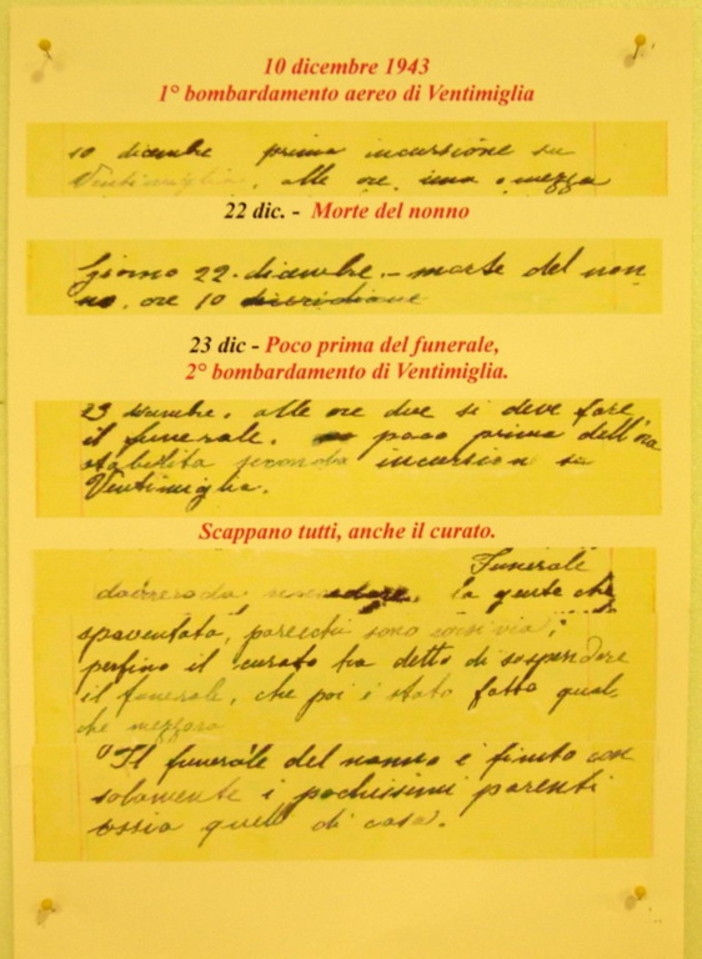 10 dicembre 1943
1° bombardamento aereo di Ventimiglia
10 dicembre prima incursione su
Ventimiglia, alle ore una e mezza
22 dic. - Morte del nonno
Giorno 22 - dicembre. - morte del non
no. ore 10
23 dic - Poco prima del funerale,
2° bombardamento di Ventimiglia.
23 dicembre. alle ore due si deve fare
il funerale. poco prima dell'ora
stabilita seconda incursion su
Ventimiglia.
Scappano tutti, anche il curato.
Funerale
la gente che
spaventata, parecchi sono corsi via;
perfino il curato ha detto di sospendere
il funerale, che poi è stato fatto qual
che mezzora
"Il funerale del nonno è finito con
solamente i pochissimi parenti
ossia quelli di casa.